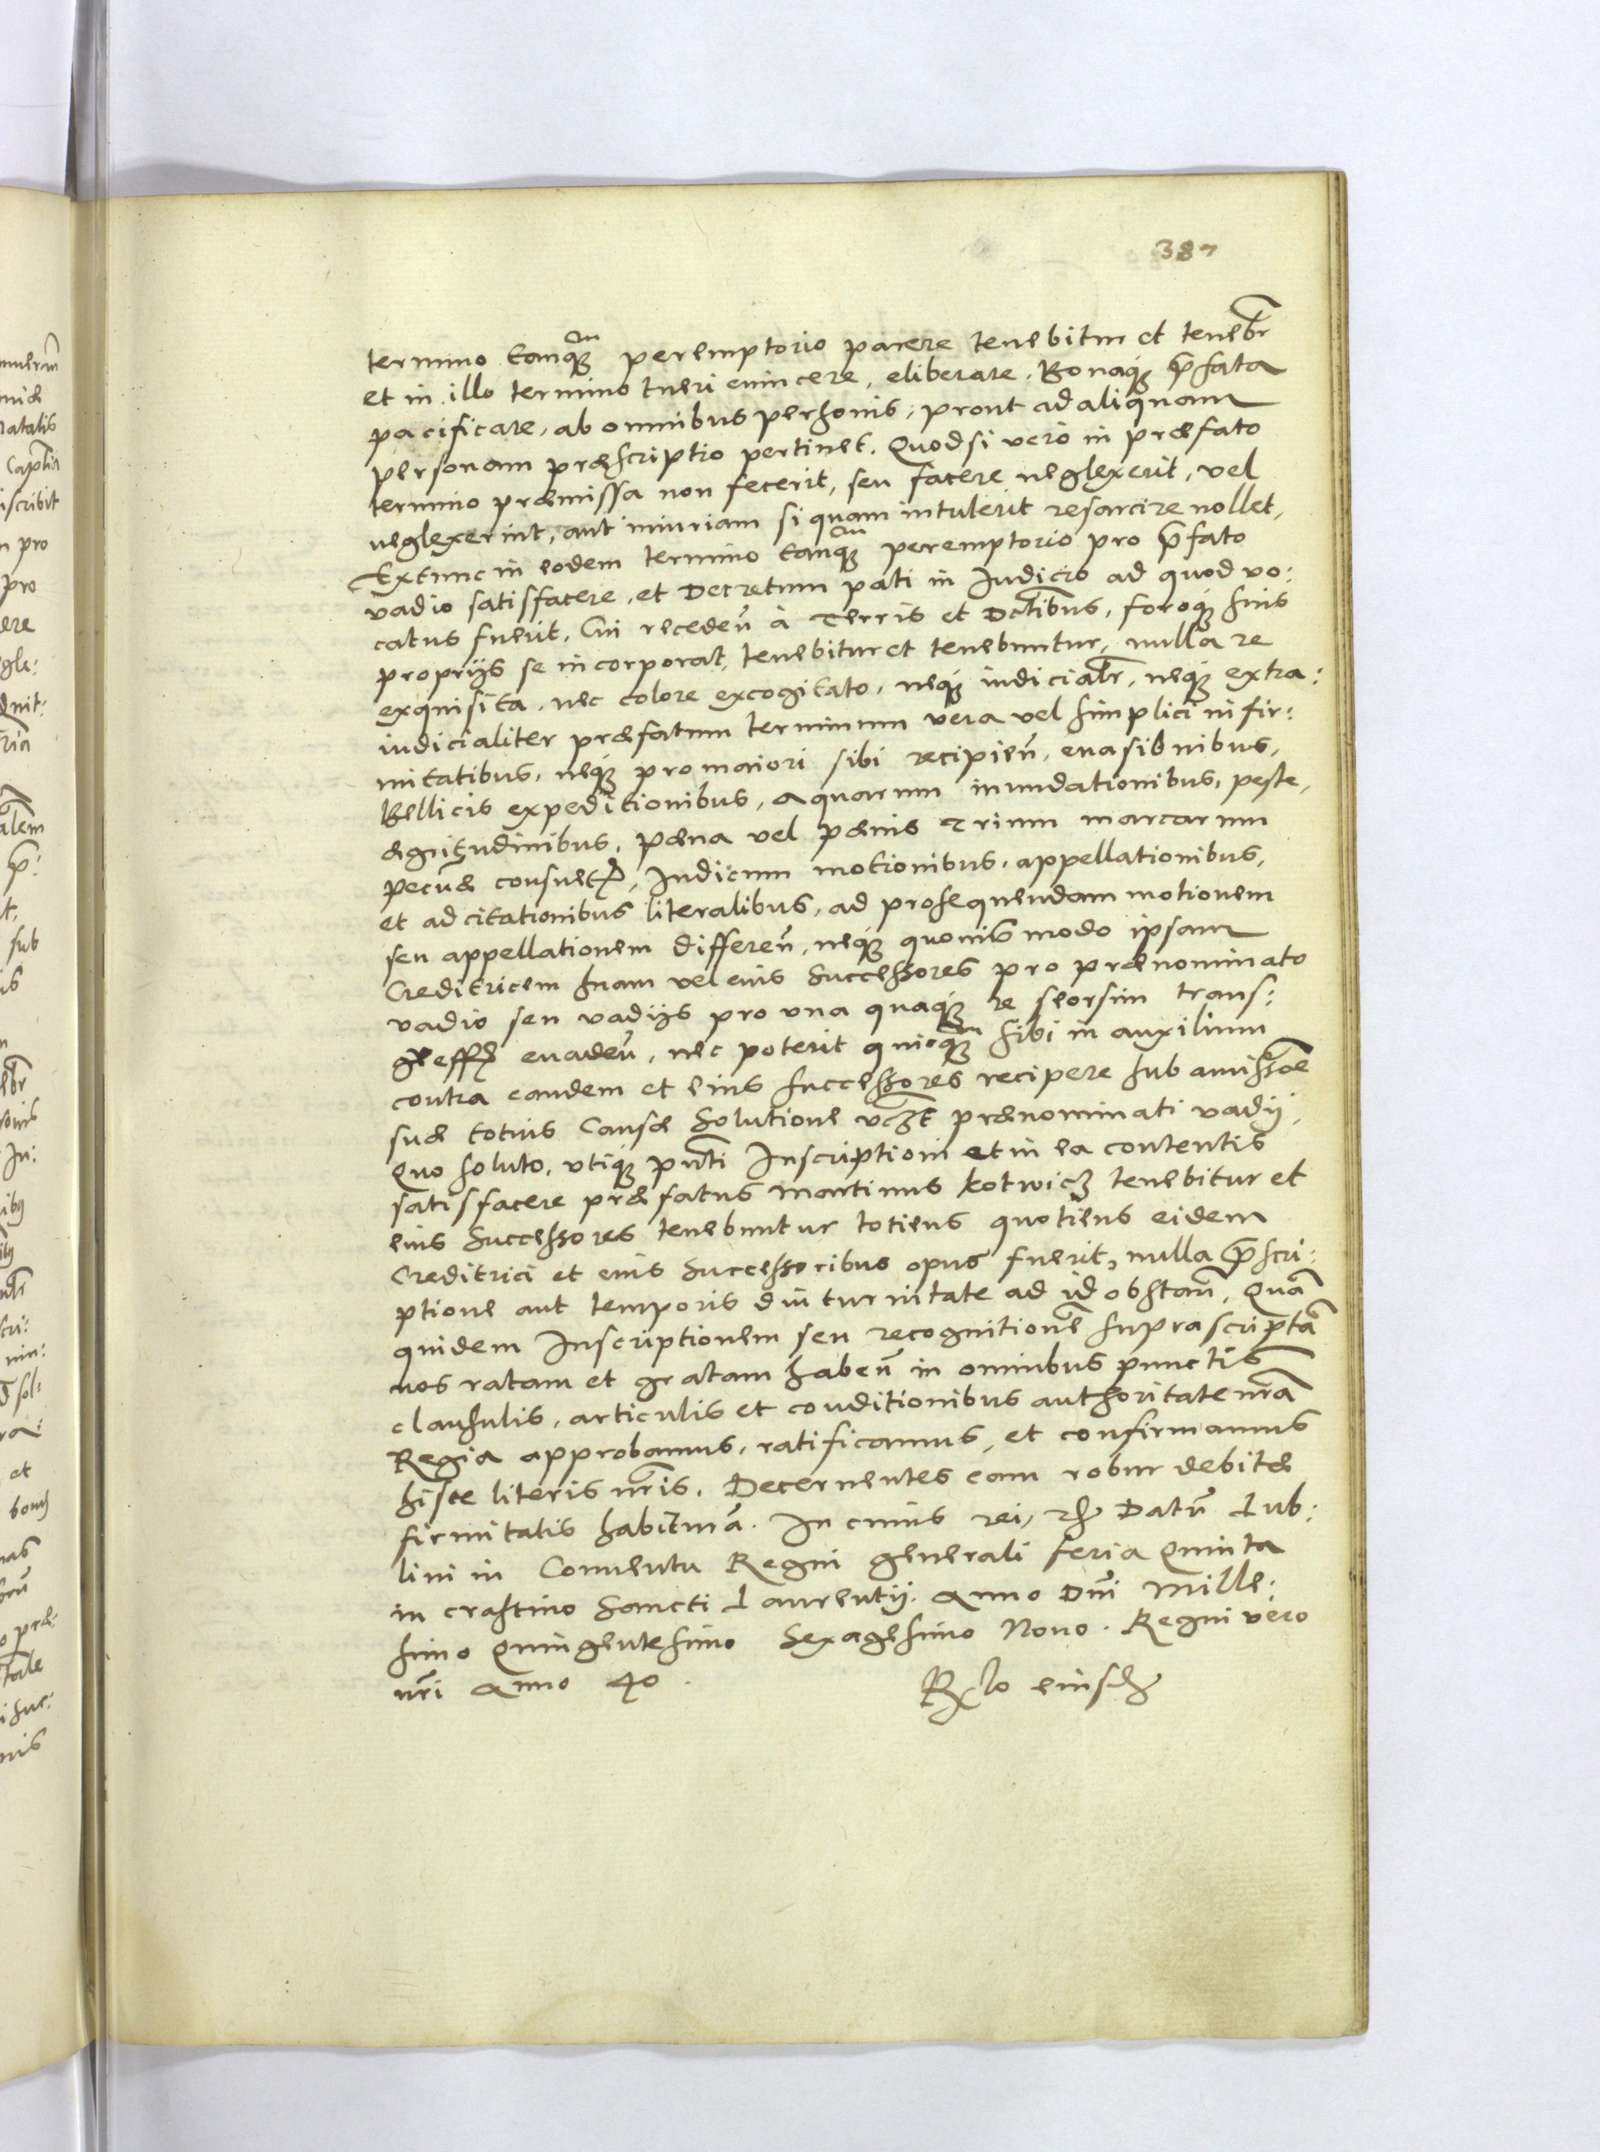 387
termino tanq̃ peremptorio parere tenebitur et tenebr̃
et in illo termino tueri euincere, eliberare, Bonaq̃ p̃fata
pacificare, ab omnibus personis, prout ad aliquam
personam præscriptio pertinet. Quod si vero in præfato
termino præmissa non fecerit, seu facere neglexerit, vel
neglexerint, aut iniuriam si quam intulerit resarcire nollet,
Extunc in eodem termino tanq̃ peremptorio pro p̃fato
vadio satisfacere, et Decretum pati in Iudicio ad quod vo:
catus fuerit. Cui receden̄ à Terris et Dc̃tibus, foroq̃ suis
proprijs se incorporat, tenebitur et tenebuntur, nulla re
exquisita, nec colore excogitato, neq̃ iudicialr̃, neq̃ extra:
iudicialiter præfatum terminum vera vel simplici infir:
mitatibus, neq̃ pro maiori sibi recipien̄, euasionibus,
Bellicis expeditionibus, aquarum inundationibus, peste,
ægritudinibus, pæna vel pænis Trium marcarum
pecuniæ consuet, Iudicum motionibus, appellationibus,
et adcitationibus literalibus, ad prosequendam motionem
seu appellationem differen̄, neq̃ quouis modo ipsam
Creditricem suam vel eius Successores pro prænominato
vadio seu vadijs pro vna quaq̃ re seorsim trans:
euaden̄, nec poterit quicq̃ sibi in auxilium
contra eandem et eius successores recipere sub amissõe
suæ totius Causæ Solutione vc̃zt prænominati vadij,
Quo soluto, vtiq̃ pñti Inscriptioni et in ea contentis
satisfacere præfatus Martinus Kotwicz tenebitur et
eius Successores tenebuntur totiens quotiens eidem
Creditrici et eius Successoribus opus fuerit, nulla p̃scri:
ptione aut temporis diuturnitate ad id obstan̄, Quã
quidem Inscriptionem seu recognitionẽ suprascriptã
nos ratam et gratam haben̄ in omnibus punctis
clausulis, articulis et conditionibus authoritate nr̃a
Regia approbamus, ratificamus, et confirmamus
hisce literis nr̃is. Decernentes eam robur debitæ
firmitatis habiturã. In cuius rei, rc̃ Datũ Lub:
lini in Conuentu Regni generali feria Quinta
in crastino Sancti Laurentij. Anno Dñi Mille:
simo Quingentesimo Sexagesimo Nono. Regni vero
nr̃i Anno 40. Rl̃o eiusd̃